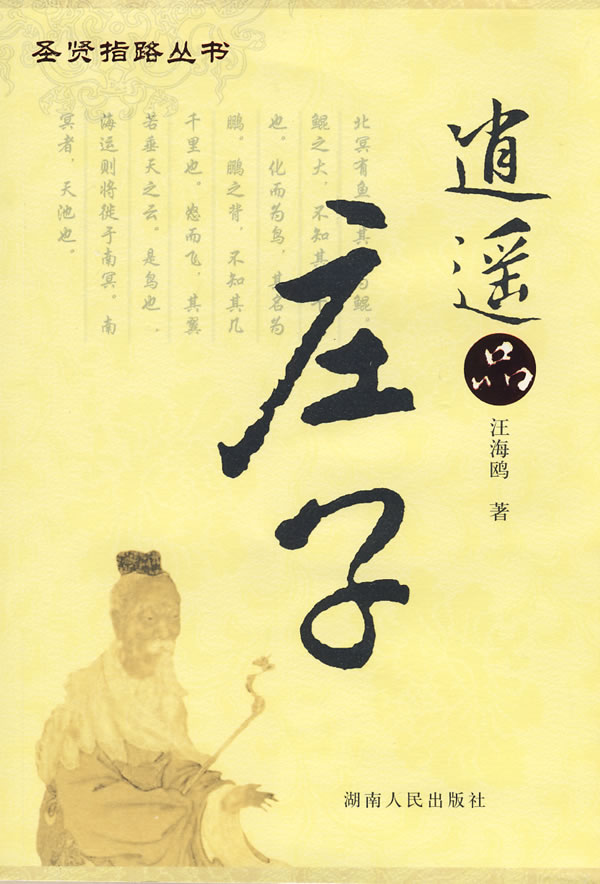 圣贤指路丛书
逍遥
品
庄子
汪海鸥 著
北冥有鱼 其 为鲲。
鲲之大,不知其 千
也。化而为鸟,其名为
鹏。鹏之背,不知其几
千里也。怒而飞,其翼
若垂天之云。是鸟也,
海运则将徙于南冥。南
冥者,天池也。
湖南人民出版社